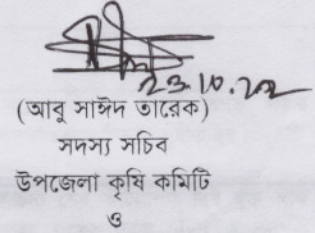 23.10.202
(আবু সাঈদ তারেক)
সদস্য সচিব
উপজেলা কৃষি কমিটি
ও